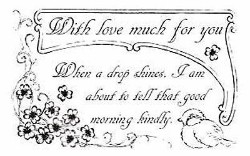 With love much for you
When a drop shines, I am
about to tell that good
morning kindly.